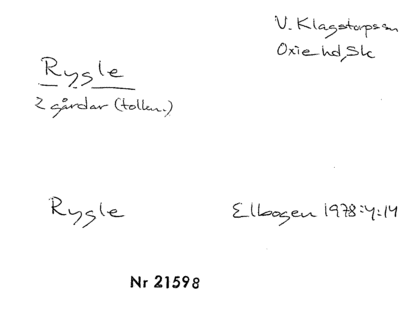 V. Klagstorps sn
Oxie hd, Sk
Rygle
2 gårdar (tolkn.)
Rygle
Elbogen 1978:4:14
Nr 21598